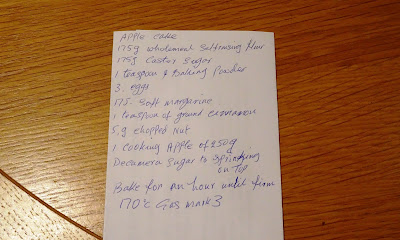 Apple Cake
175g wholemeal Self raising flour
175g Caster Sugar
1 teaspoon of Baking Powder
3. eggs
175. Soft margarine
1 teaspoon of ground cinnamon
5g chopped nut
1 cooking Apple of 250g
Decamera Sugar to Sprinkling
on Top
Bake for an hour until firm
170°c Gas mark 3